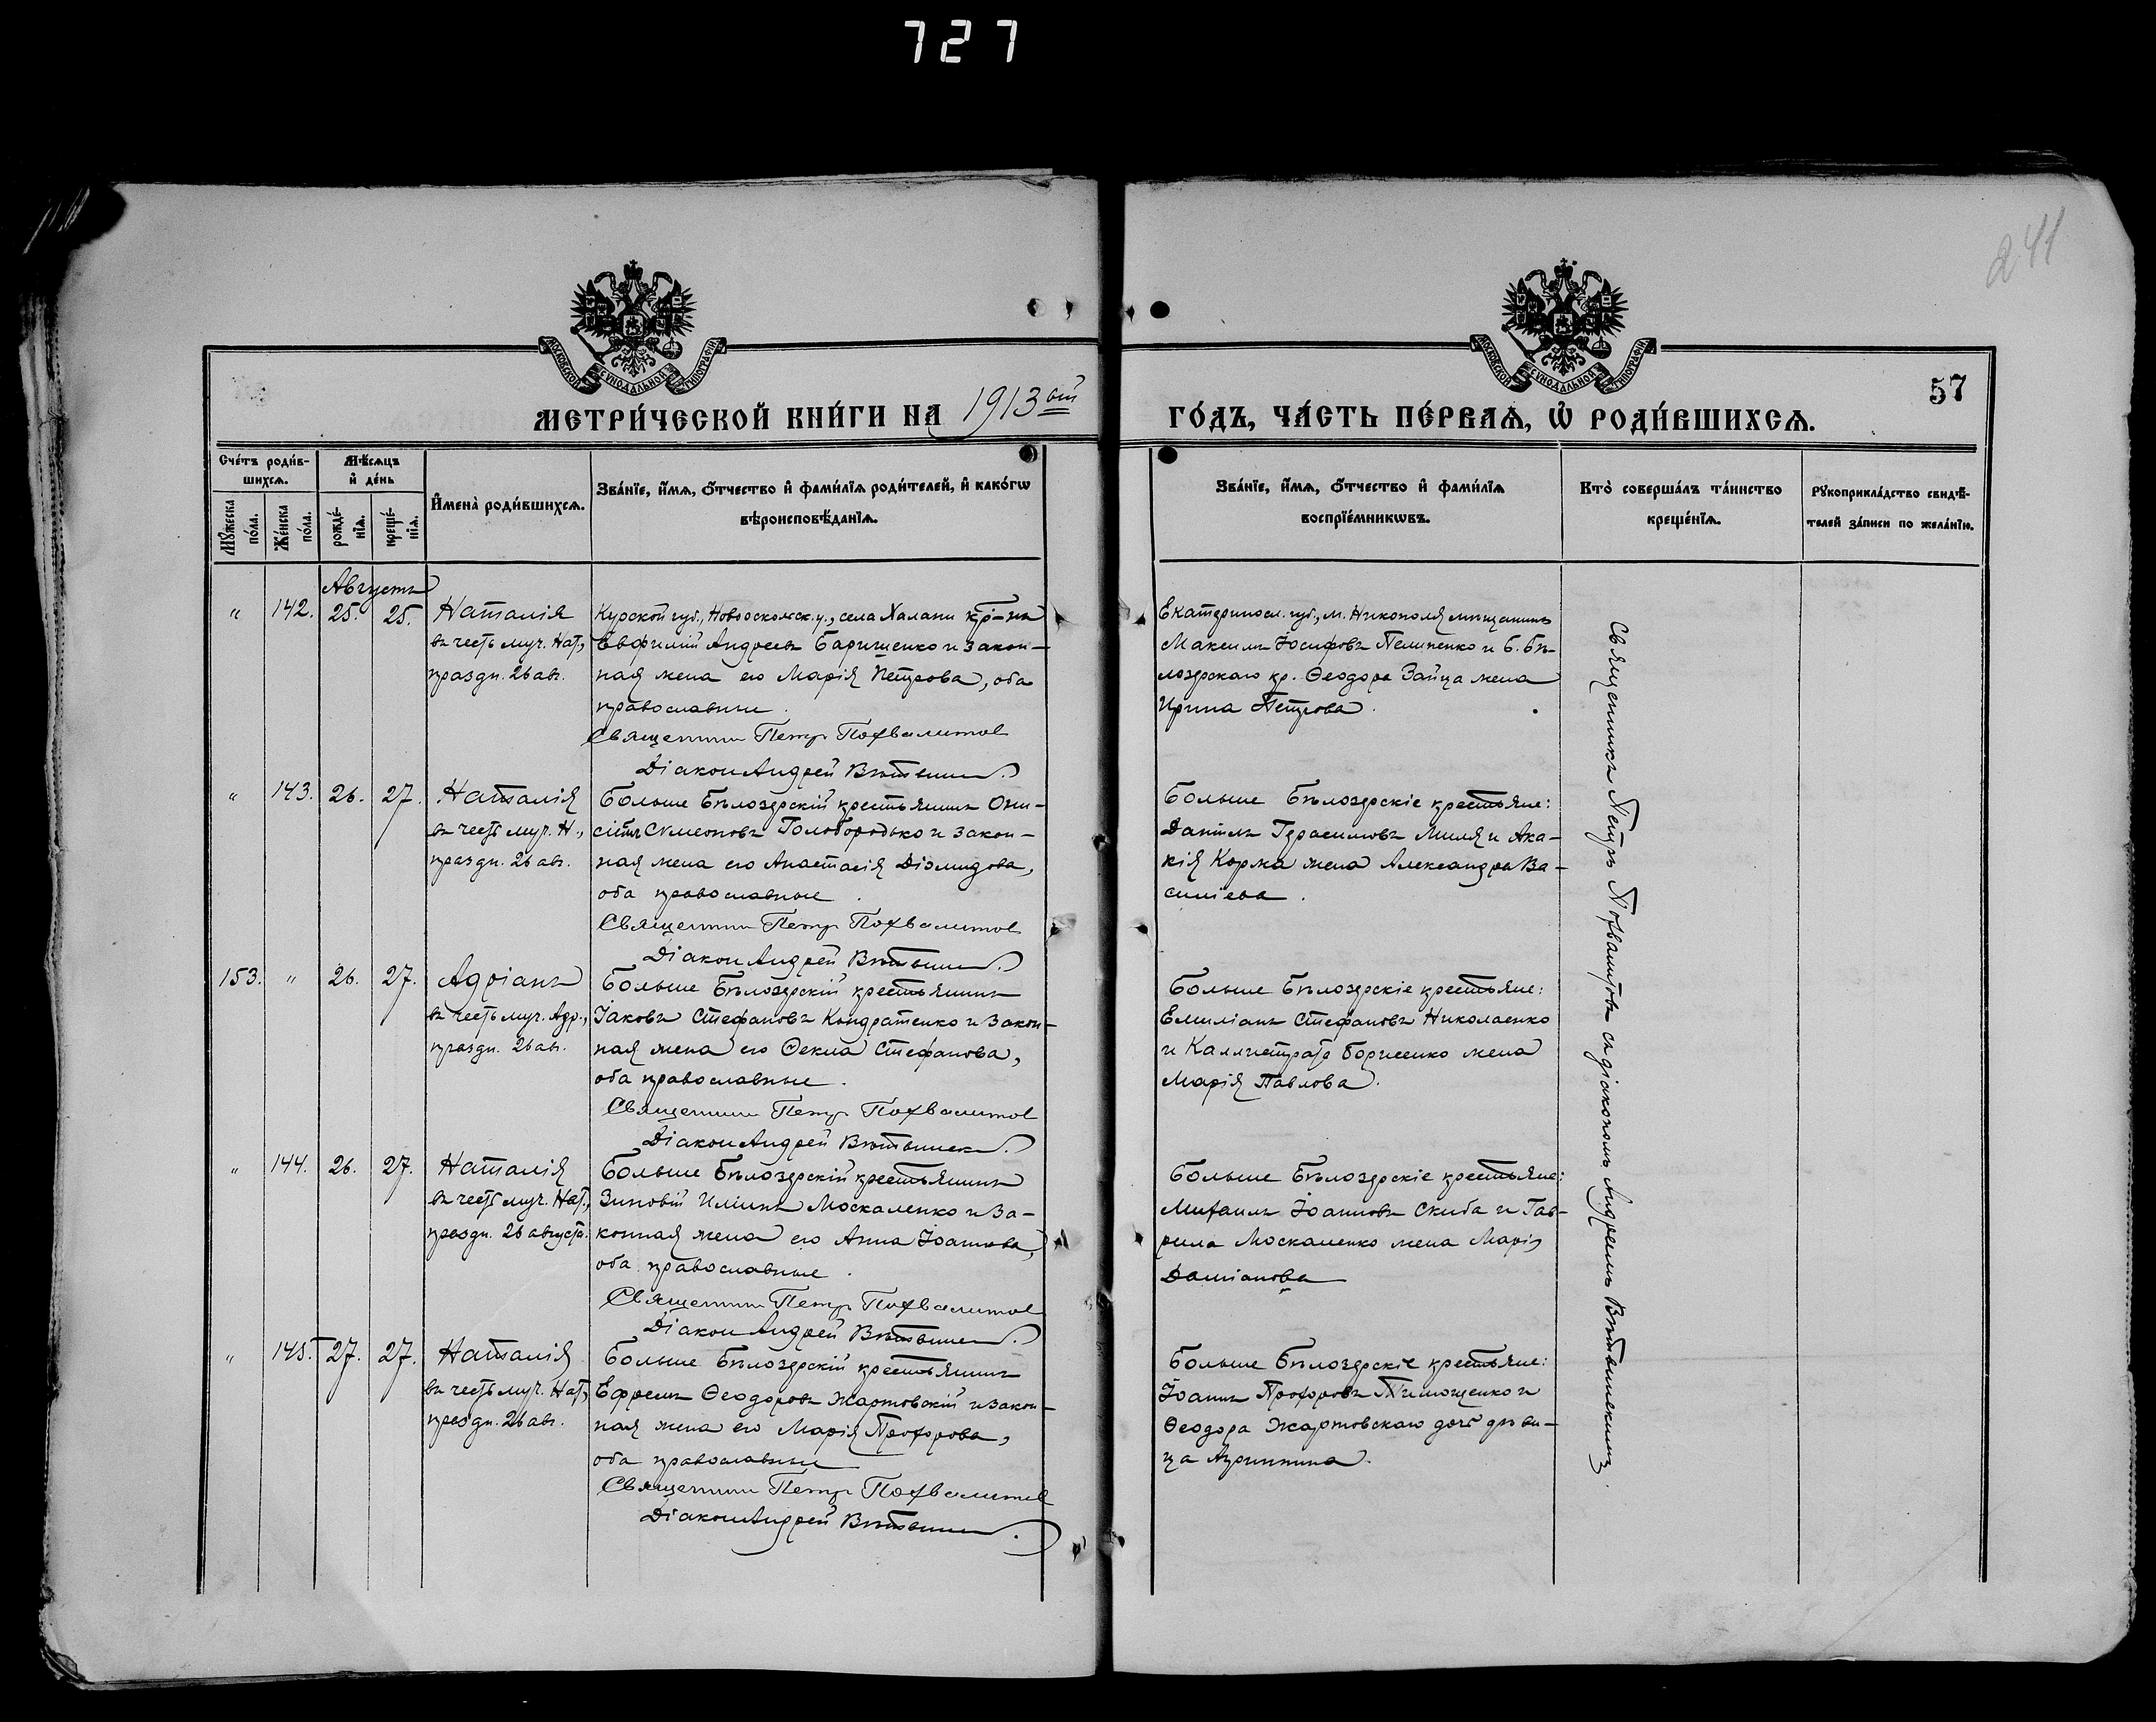 727
241
МОСКОВСКОЙ СѴНОДАЛЬНОЙ ТИПОГРАФІИ
МОСКОВСКОЙ СѴНОДАЛЬНОЙ ТИПОГРАФІИ
57
МЕТРИ́ЧЕСКОЙ КНИ́ГИ НА 1913ый ГО́ДЪ, ЧА́СТЬ ПЕ́РВАѦ, Ѡ РОДИ́ВШИХСѦ.
Сче́тъ роди́в-
шихсѧ.
Мꙋ́жеска по́ла.
Же́нска по́ла.
Мѣ́сѧцъ
и҆ де́нь
рожде́-нїѧ.
креще́-нїѧ.
И҆мена̀ роди́вшихсѧ.
Зва́нїе, и҆́мѧ, ѻ҆́тчество и҆ фами́лїѧ роди́телей, и҆ како́гѡ
вѣроисповѣ́данїѧ.
Зва́нїе, и҆́мѧ, ѻ҆́тчество и҆ фами́лїѧ
воспрїе́мникѡвъ.
Кто̀ соверша́лъ та́инство
креще́нїѧ.
Рꙋкоприкла́дство свидѣ́-
телей за́писи по жела́нїю.
Августъ
" 142. 25. 25. Наталія
въ честь муч. Нат.,
праздн. 26 авг.
Курской губ., Новооскольск. у., села Халани кр-нъ
Евфимій Андреевъ Барищенко и закон-
ная жена его Марія Петрова, оба
православные.
Священникъ Петръ Похвалитовъ
Діаконъ Андрей
Екатериносл. губ., м. Никополя мѣщанинъ
Максимъ Іосифовъ и Б. Бѣ-
лозерскаго кр. Ѳеодора Зайца жена
Ирина Петрова.
" 143. 26. 27. Наталія
въ честь муч. Н.,
праздн. 26 авг.
Больше Бѣлозерскій крестьянинъ Они-
сімъ Сѵмеоновъ Голобородько и закон-
ная жена его Анастасія Діомидова,
оба православные.
Священникъ Петръ Похвалитовъ
Діаконъ Андрей
Больше Бѣлозерскіе крестьяне:
Даніилъ Герасимовъ и Ака-
кія Коржа жена Александра Ва-
силіева.
153. " 26. 27. Адріанъ
въ честь муч. Адр.,
праздн. 26 авг.
Больше Бѣлозерскій крестьянинъ
Іаковъ Стефановъ Кондратенко и закон-
ная жена его Ѳекла Стефанова,
оба православные.
Священникъ Петръ Похвалитовъ
Діаконъ Андрей
Больше Бѣлозерскіе крестьяне:
Емиліанъ Стефановъ Николаенко
и Каллистрата Борисенко жена
Марія Павлова.
" 144. 26. 27. Наталія
въ честь муч. Нат.,
праздн. 26 августа.
Больше Бѣлозерскій крестьянинъ
Зиновій Иліинъ Москаленко и за-
конная жена его Анна Іоаннова,
оба православные.
Священникъ Петръ Похвалитовъ
Діаконъ Андрей
Больше Бѣлозерскіе крестьяне:
Михаилъ Іоанновъ Скиба и Гав-
рила Москаленко жена Марія
Даміанова
" 145. 27. 27. Наталія
въ честь муч. Нат.,
праздн. 26 авг.
Больше Бѣлозерскій крестьянинъ
Ефремъ Ѳеодоровъ Жартовскій и закон-
ная жена его Марія Прохорова,
оба православные
Священникъ Петръ Похвалитовъ
Діаконъ Андрей
Больше Бѣлозерскіе крестьяне:
Іоаннъ Прохоровъ Тимощенко и
Ѳеодора Жартовскаго дочь дѣви-
ца Агриппина.
Священникъ Петръ Похвалитовъ съ діакономъ Андреемъ